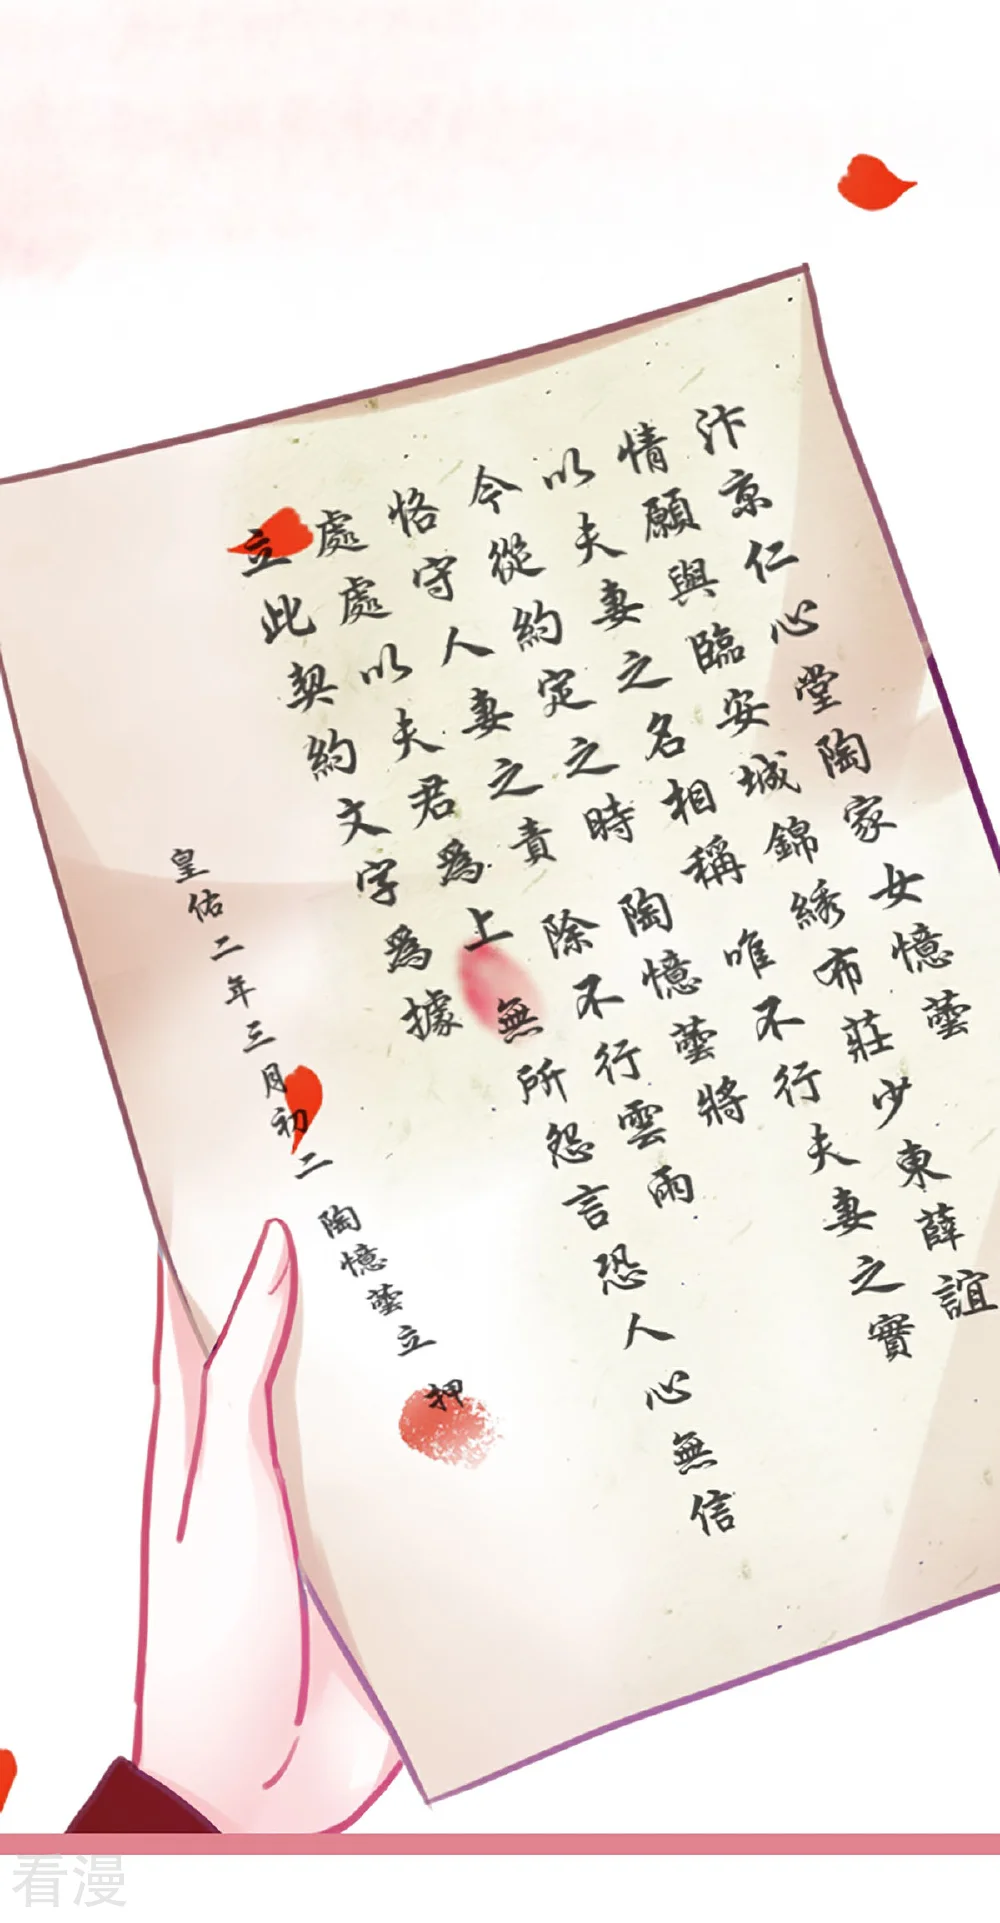 汴京仁心堂陶家女憶蕓
情願與臨安城錦綉布莊少東薛誼
以夫妻之名相稱 唯不行夫妻之實
今從約定之時 陶憶蕓將
恪守人妻之責 除不行雲雨
處處以夫君爲上 無所怨言恐人心無信
立此契約文字爲據
皇佑二年三月初二 陶憶蕓立 押
看漫